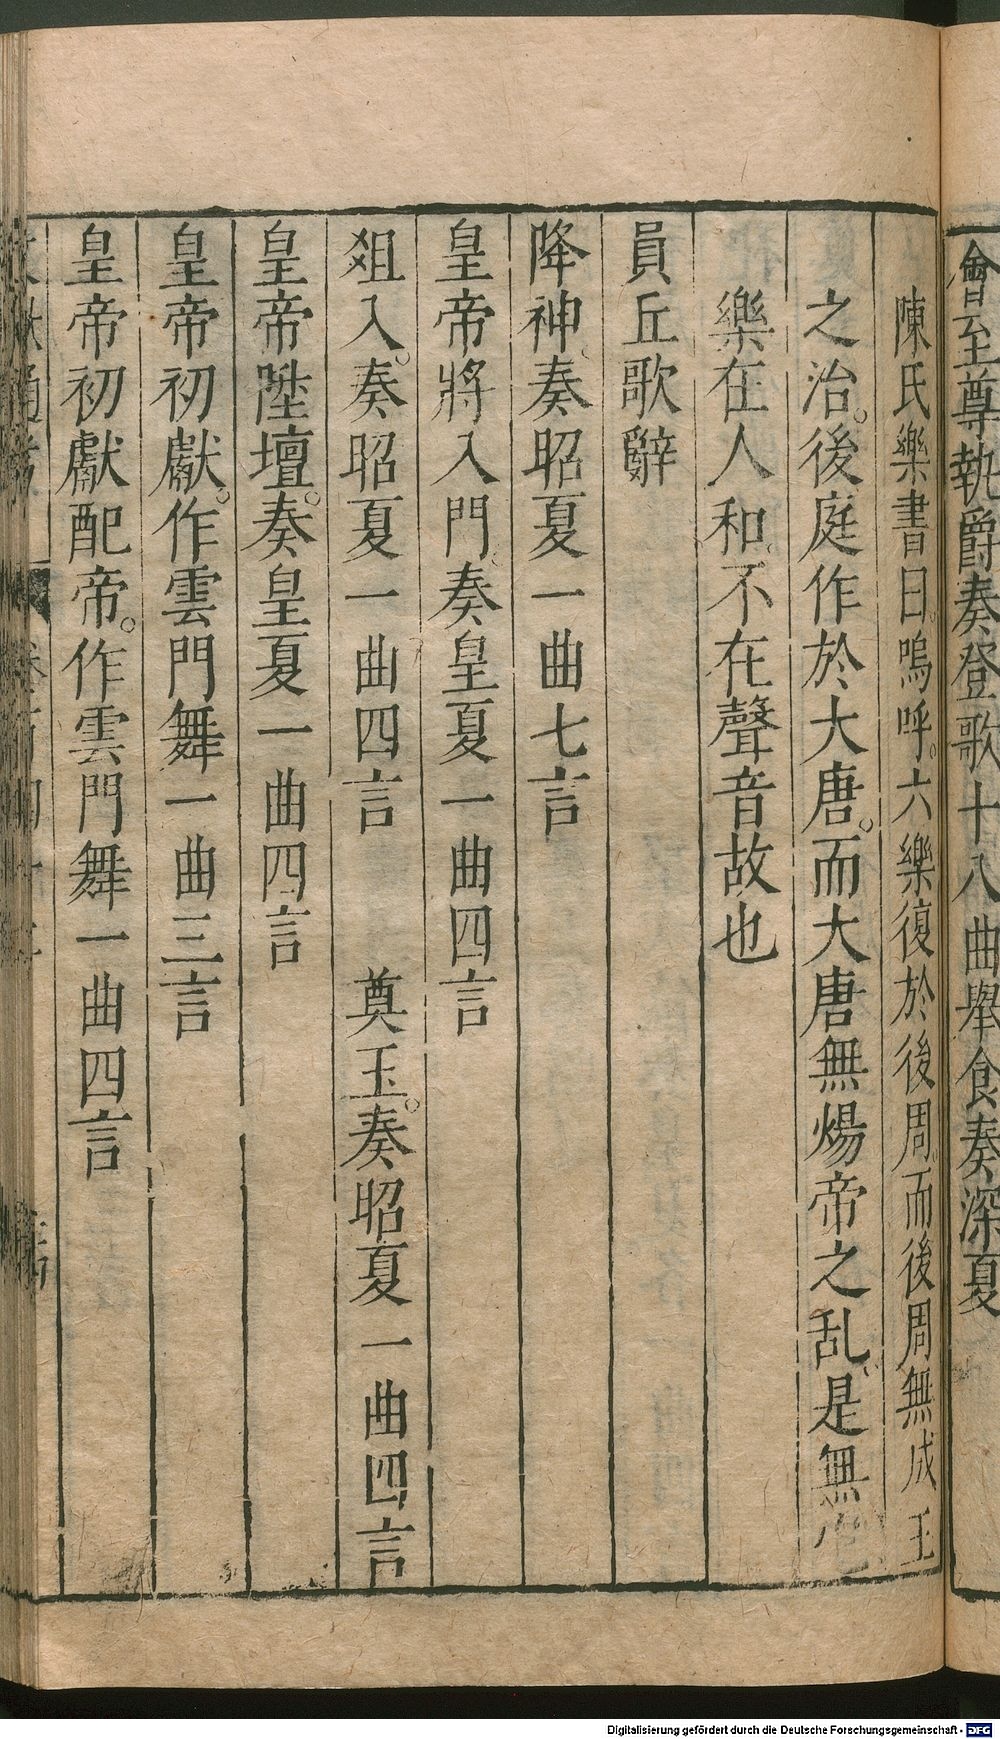 會至尊執爵奏登歌十八曲舉食奏深夏
陳氏樂書曰嗚呼。六樂復於後周。而後周無成王
之治。後庭作於大唐。而大唐無煬帝之乱、是無
樂在人和、不在聲音故也
員丘歌辭
降神、奏昭夏一曲七言
皇帝將入門、奏皇夏一曲四言
爼入。奏昭夏一曲四言　奠玉。奏昭夏一曲四言
皇帝陞壇。奏皇夏一曲四言
皇帝初獻。作雲門舞一曲三言
皇帝初獻配帝。作雲門舞一曲四言
Digitalisierung gefördert durch die Deutsche Forschungsgemeinschaft - DFG